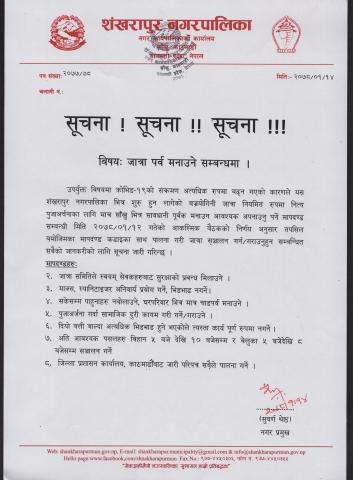 शंखरापुर नगरपालिका
नगर कार्यपालिकाको कार्यालय
पत्र संख्याः २०७७/७८
मितिः- २०७८/०१/१४
चलानी नं.:
सूचना ! सूचना !! सूचना !!!
विषयः जात्रा पर्व मनाउने सम्बन्धमा ।
उपर्युक्त विषयमा कोभिड-१९को संक्रमण अत्यधिक रुपमा बढ्न गएको कारणले यस
शंखरापुर नगरपालिका भित्र शुरु हुन लागेको बज्रयोगिनी जात्रा नियमित रुपमा नित्य
पुजाअर्चनाका लागि मात्र साँखु भित्र सावधानी पूर्वक मनाउन आवश्यक अपनाउनु पर्ने मापदण्ड
सम्वन्धी मिति २०७८/०१/१२ गतेको आकस्मिक बैठकको निर्णय अनुसार तपसिल
बमोजिमका मापदण्ड कडाइका साथ पालना गरी जात्रा सञ्चालन गर्न/गराउनुहुन सम्बन्धित
सबैको जानकारीको लागि सूचना जारी गरिन्छ ।
मापदण्डहरुः
२. जात्रा समितिले स्वयम् सेवकहरुबाट सुरक्षाको प्रबन्ध मिलाउने ।
३. मास्क, स्यानिटाइजर अनिवार्य प्रयोग गर्ने, भिडभाड नगर्ने ।
४. सकेसम्म पाहुनाहरु नबोलाउने, घरपरिवार भित्र मात्र चाडपर्व मनाउने ।
५. पुजाअर्जना गर्दा सामाजिक दुरी कायम गरी गर्ने/गराउने ।
६. दियो वत्ती बाल्दा अत्यधिक भिडभाड हुने भएकोले त्यस्ता कार्य पूर्ण रुपमा नगर्ने ।
७. अति आवश्यक पसलहरु विहान ५ बजे देखि १० बजेसम्म र बेलुका ५ बजेदेखि ८
बजेसम्म सञ्चालन गर्ने
८. जिल्ला प्रशासन कार्यालय, काठमाडौंबाट जारी परिपत्र सबैले पालना गर्ने ।
(सुवर्ण श्रेष्ठ)
नगर प्रमुख
Web: shankharapurmun.gov.np, E-mail: shankharapur.municipality@gmail.com & info@shankharapurmun.gov.np